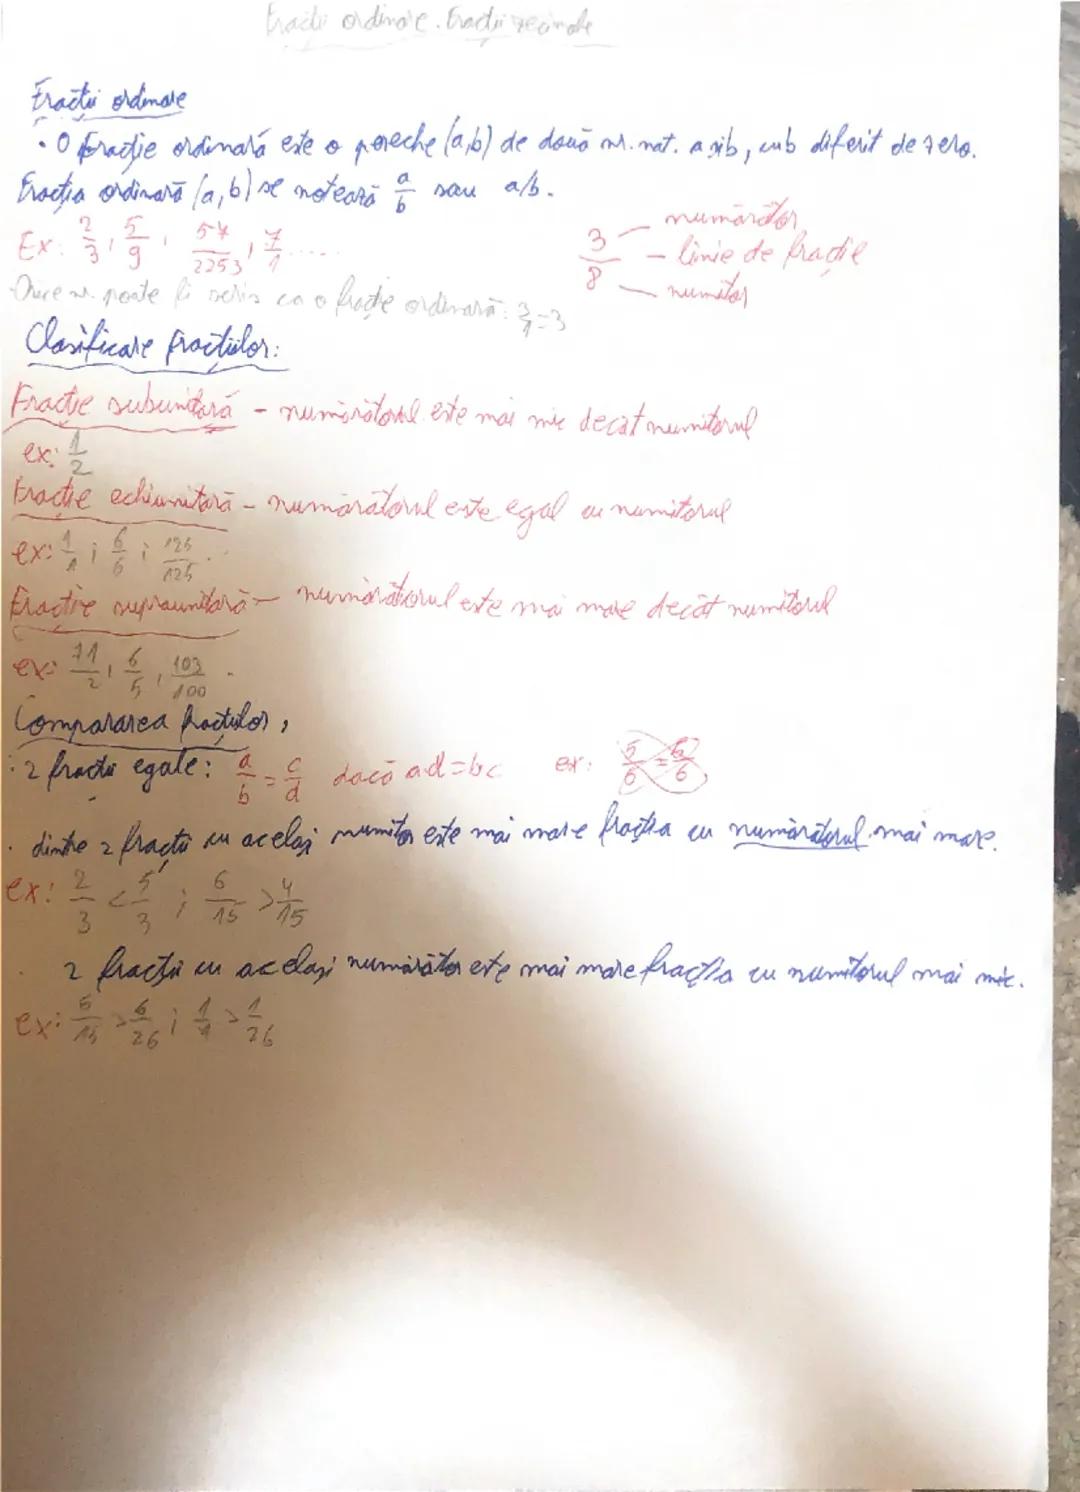 Fracții ordinare. Fracții zecimale
Fracții ordinare
• O fracție ordinară este o pereche (a,b) de două nr. nat. a și b, cu b diferit de zero.
Fracția ordinară (a,b) se notează a/b sau a/b.
Ex: 2/3, 5/9, 57/2253, 7/1 .....
3/8 — numărător
— linie de fracție
— numitor
Orice nr. poate fi scris ca o fracție ordinară: 3/1=3
Clasificare fracțiilor:
Fracție subunitară - numărătorul este mai mic decât numitorul
ex: 1/2
Fracție echiunitară - numărătorul este egal cu numitorul
ex: 1/1 ; 6/6 ; 125/125 ..
Fracție supraunitară - numărătorul este mai mare decât numitorul
ex: 11/2, 6/5, 103/100 .
Compararea fracțiilor,
: 2 fracții egale: a/b = c/d dacă ad=bc ex: 5/6 = 5/6
. dintre 2 fracții cu același numitor este mai mare fracția cu numărătorul mai mare.
ex: 2/3 < 5/3 ; 6/15 > 4/15
2 fracții cu același numărător este mai mare fracția cu numitorul mai mic.
ex: 6/15 > 6/26 ; 1/1 > 1/26